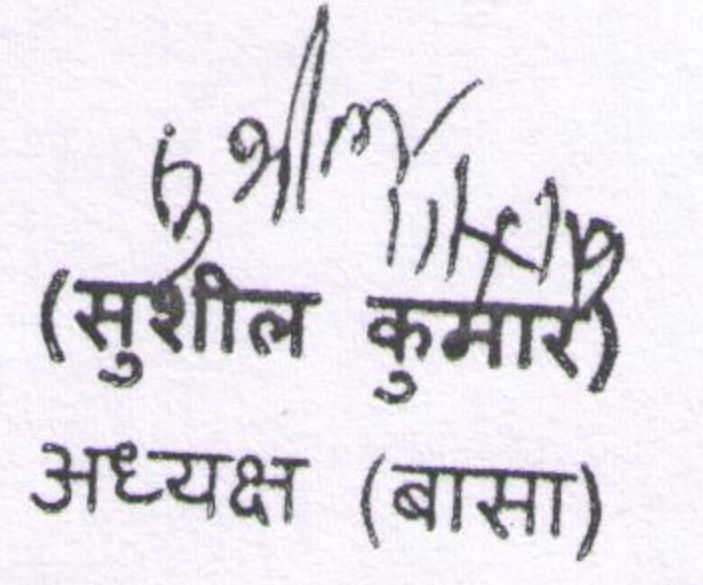 सुशील
(सुशील कुमार)
अध्यक्ष (बासा)